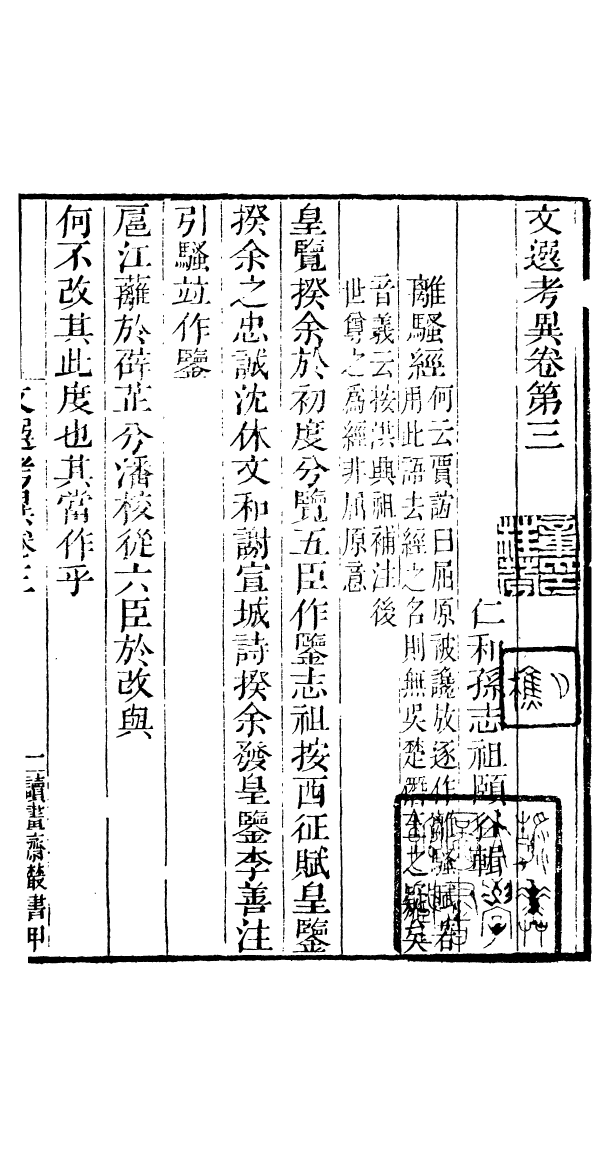 文選考異卷第三
仁和孫志祖頤谷輯
離騷經何云賈誼曰屈原被讒放逐作離騷賦若
用此語去經之名則無吳楚僭王之疑矣
音義云按洪興祖補注後
世尊之爲經非屈原意
皇覽揆余於初度兮覽五臣作鑒志祖按西征賦皇鑒
揆余之忠誠沈休文和謝宣城詩揆余發皇鑒李善注
引騷並作鑒
扈江蘺於薜芷兮潘校從六臣於改與
何不改其此度也其當作乎
文選考異卷三
一讀畫齋叢書甲